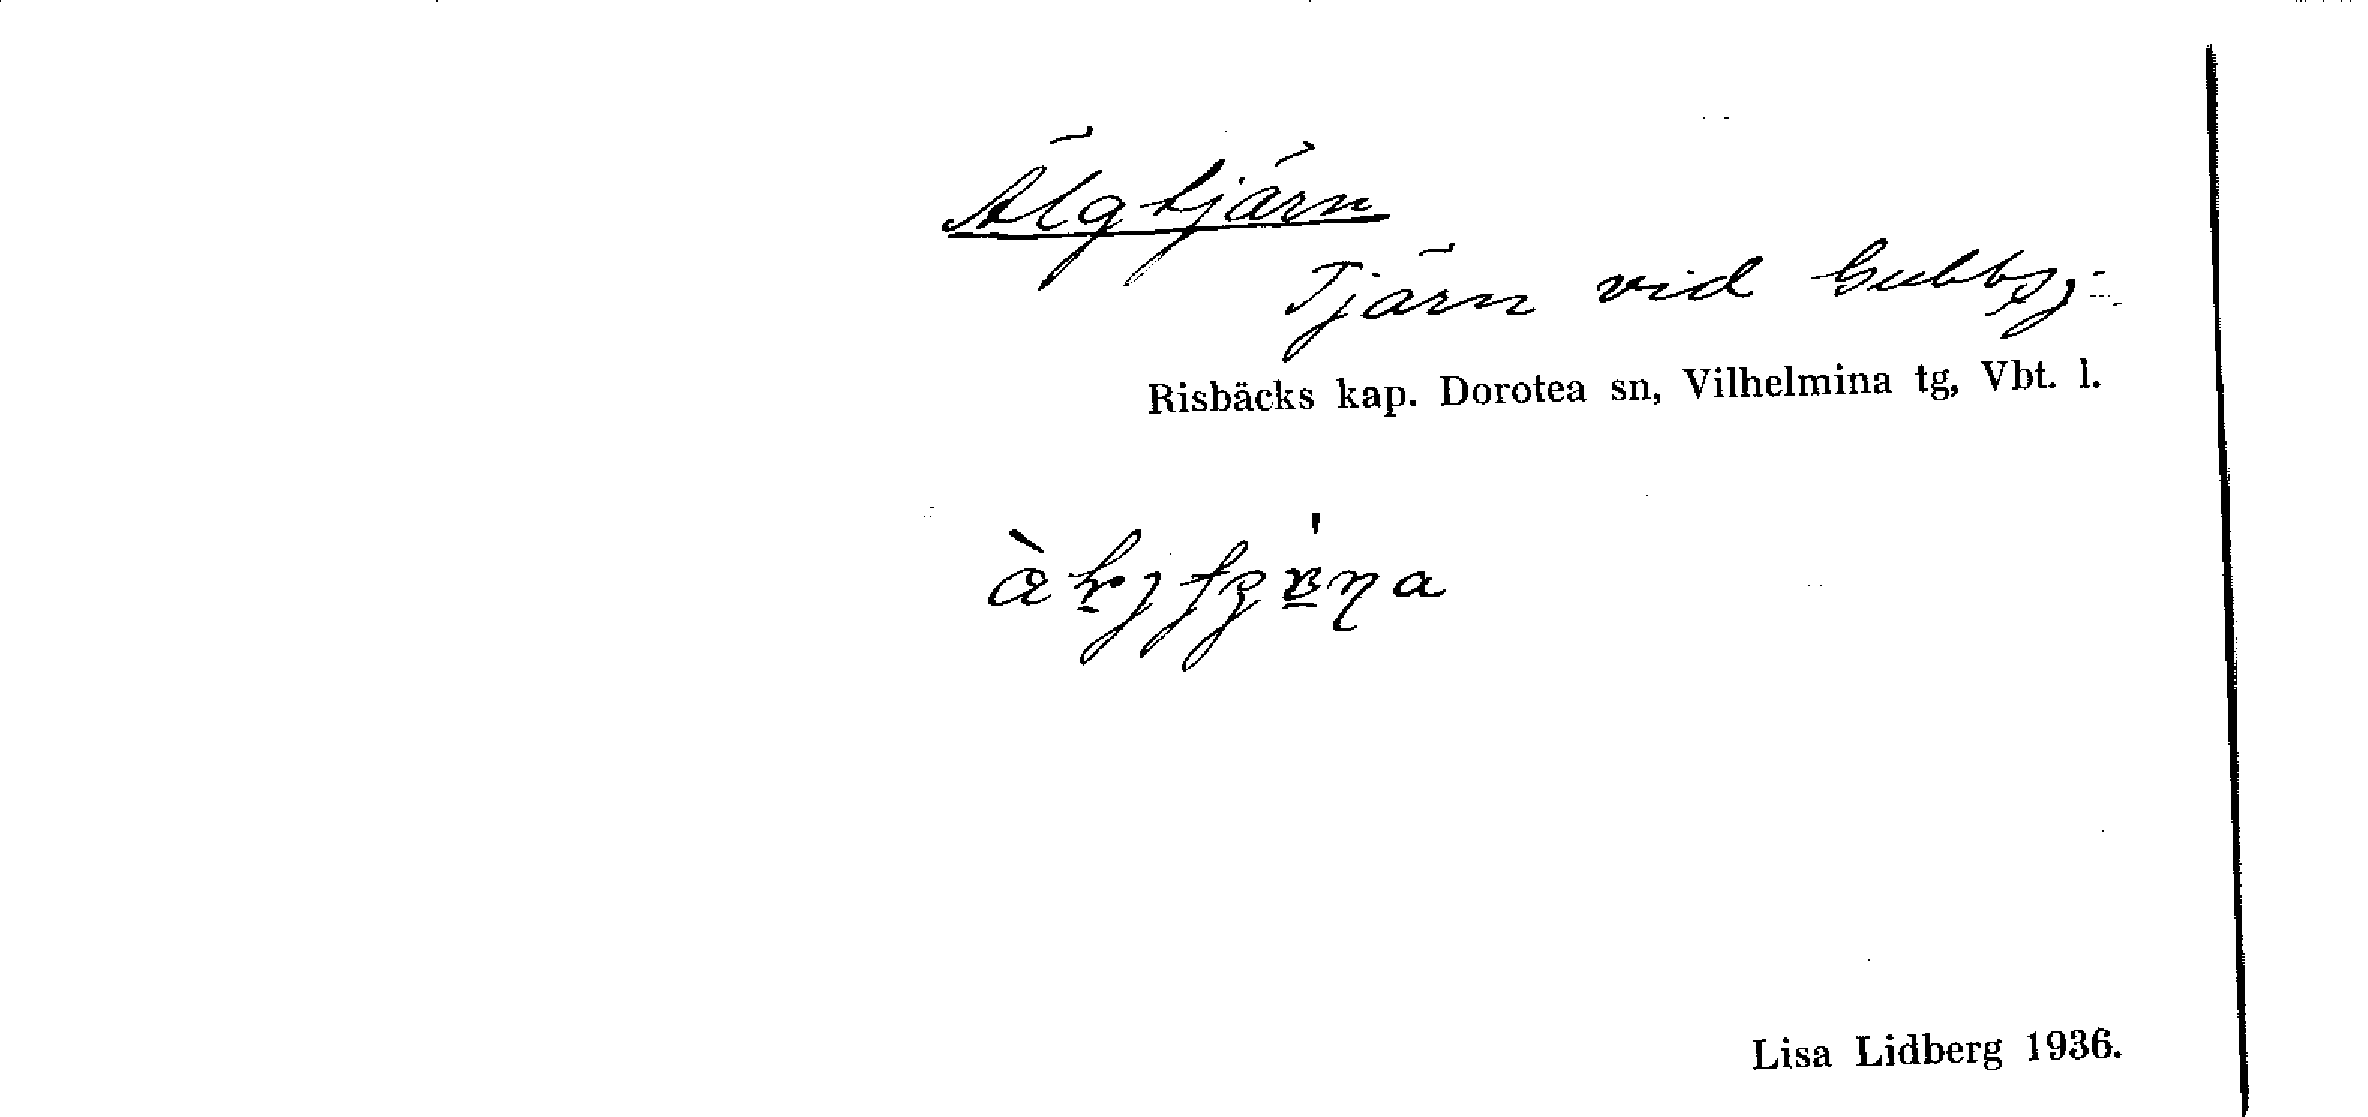 Älgtjärn
Tjärn vid Gubbsj.
Risbäcks kap. Dorotea sn, Vilhelmina tg, Vbt. l.
Lisa Lidberg 1936.